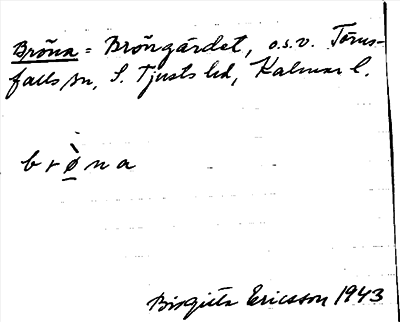 Bröna = Bröngärdet, o.s.v. Törns-
falls sn, S. Tjusts hd, Kalmar l.
br ø̀ na
Birgitta Ericsson 1943